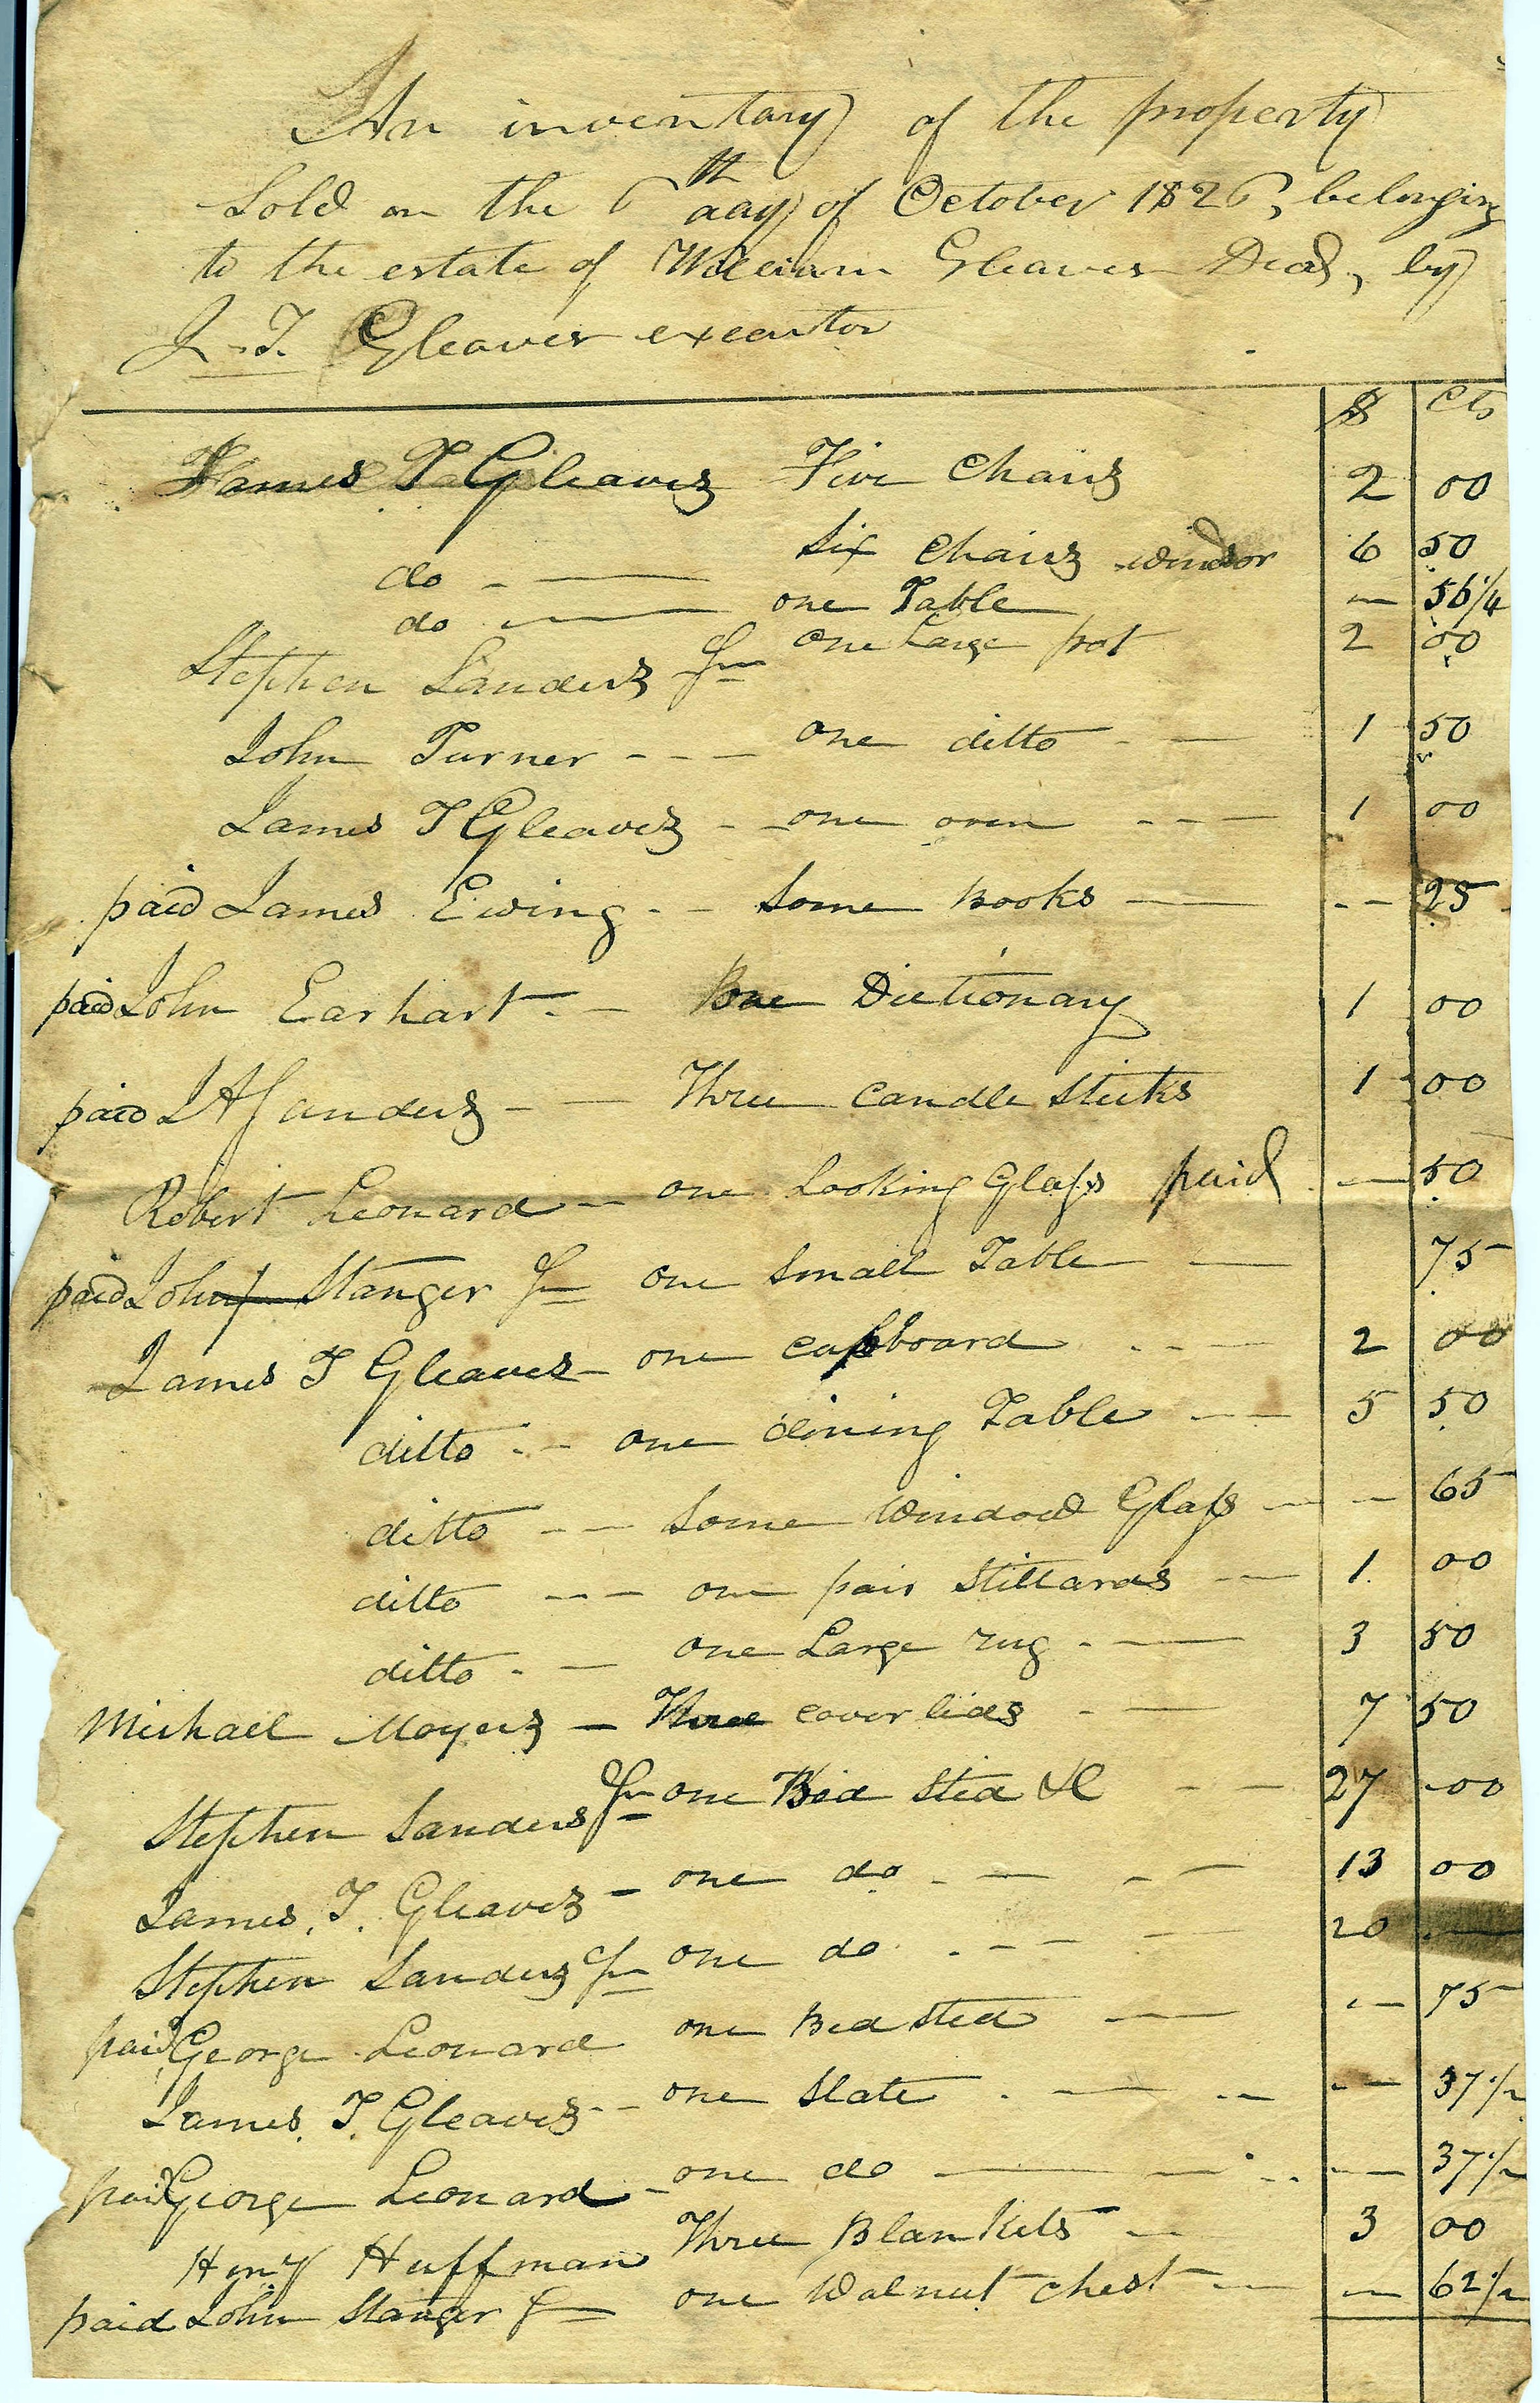 An inventary of the property
Sold on the 6th day of October 1826, belonging
to the estate of William Gleaves Decd, by
J. T. Gleaves executor
$ Cts
James T Gleaves Five Chairs 2 00
do - — Six Chairs windsor 6 50
do - — one Table — 56 1/4
Stephen Sanders Jnr one Large pot 2 00
John Turner - - - one ditto - — 1 50
James T Gleaves - - one oven - - - 1 00
paid James Ewing - - Some Books — - - 25
paid John Earhart - - One Dictionary 1 00
paid J A Sanders - — Three Candle Sticks 1 00
Robert Leonard - - one Looking Glass paid — 50
paid John Stanger Jnr one Small Table — 75
James T Gleaves - one cupboard - - - 2 00
ditto - - one dining Table - — 5 50
ditto - - Some Window Glass - - 65
ditto - - - one pair Stillards - — 1 00
ditto - — one Large rug - — 3 50
Michael Moyers - Three coverlids - — 7 50
Stephen Sanders Jnr one Bed Sted &C - - 27 00
James. T. Gleaves - one do - — - - 13 00
Stephen Sanders Jnr one do - - - — 20 —
paid George Leonard one Bed Sted — - - 75
James. T. Gleaves - - one Slate - — - - - - 37 1/2
paid George Leonard - one do — — - - - - 37 1/2
Heny Huffman Three Blankets - 3 00
paid John Stanger Jnr one Walnut Chest - — — 62 1/2